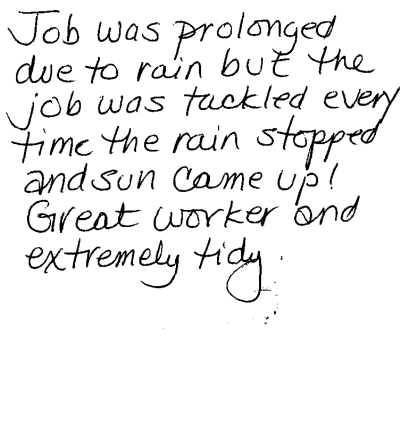 Job was prolonged
due to rain but the
job was tackled every
time the rain stopped
and sun came up!
Great worker and
extremely tidy.